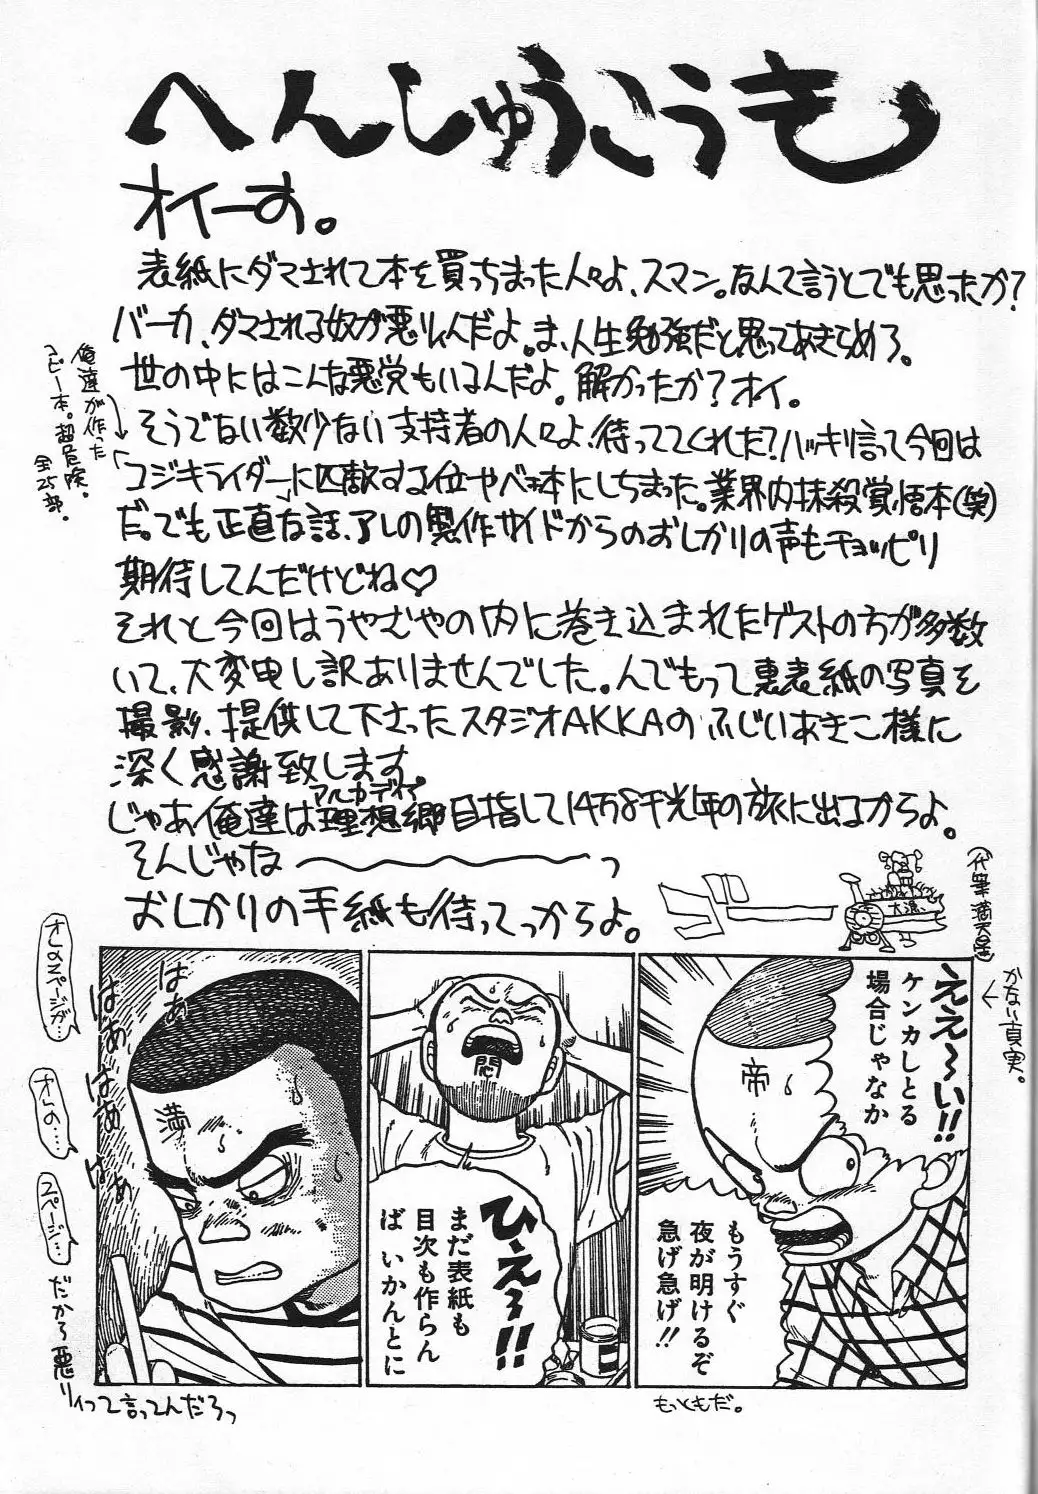 へんしゅうこうき
オイーす。
表紙にダマされて本を買っちまった人々よ、スマン。なんて言うとでも思ったか?
バーカ、ダマされる奴が悪いんだよ。ま、人生勉強だと思ってあきらめろ。
世の中にはこんな悪党もいるんだよ。解かったか?オイ。
そうでない数少ない支持者の人々よ、待っててくれた?ハッキリ言って今回は
「コジキライダー」に匹敵する位ヤベェ本にしちまった。業界内抹殺覚悟本(笑)
だ。でも正直な話、アレの製作サイドからのおしかりの声もチョッピリ
期待してんだけどね♡
それと今回はうやむやの内に巻き込まれたゲストの方が多数
いて、大変申し訳ありませんでした。んでもって裏表紙の写真を
撮影、提供して下さったスタジオAKKAのふじいあきこ様に
深く感謝致します。
じゃあ俺達は理想郷目指して14万8千光年の旅に出るからよ。
アルカディア
そんじゃな〜っ
おしかりの手紙も待ってっからよ。
俺達が作った
コピー本。超危険。
全25部。
大漁
(代筆 満天星)
かない真実。
ええ〜い!!
ケンカしとる
場合じゃなか
帝
もうすぐ
夜が明けるぞ
急げ急げ!!
もっともだ。
悶
ひえ〜!!
まだ表紙も
目次も作らん
ば いかんとに
はぁ
はぁ
はぁ
はぁ
満
オレのページが…
オレの…
ページ…
だから悪り
ィって言ってんだろっ